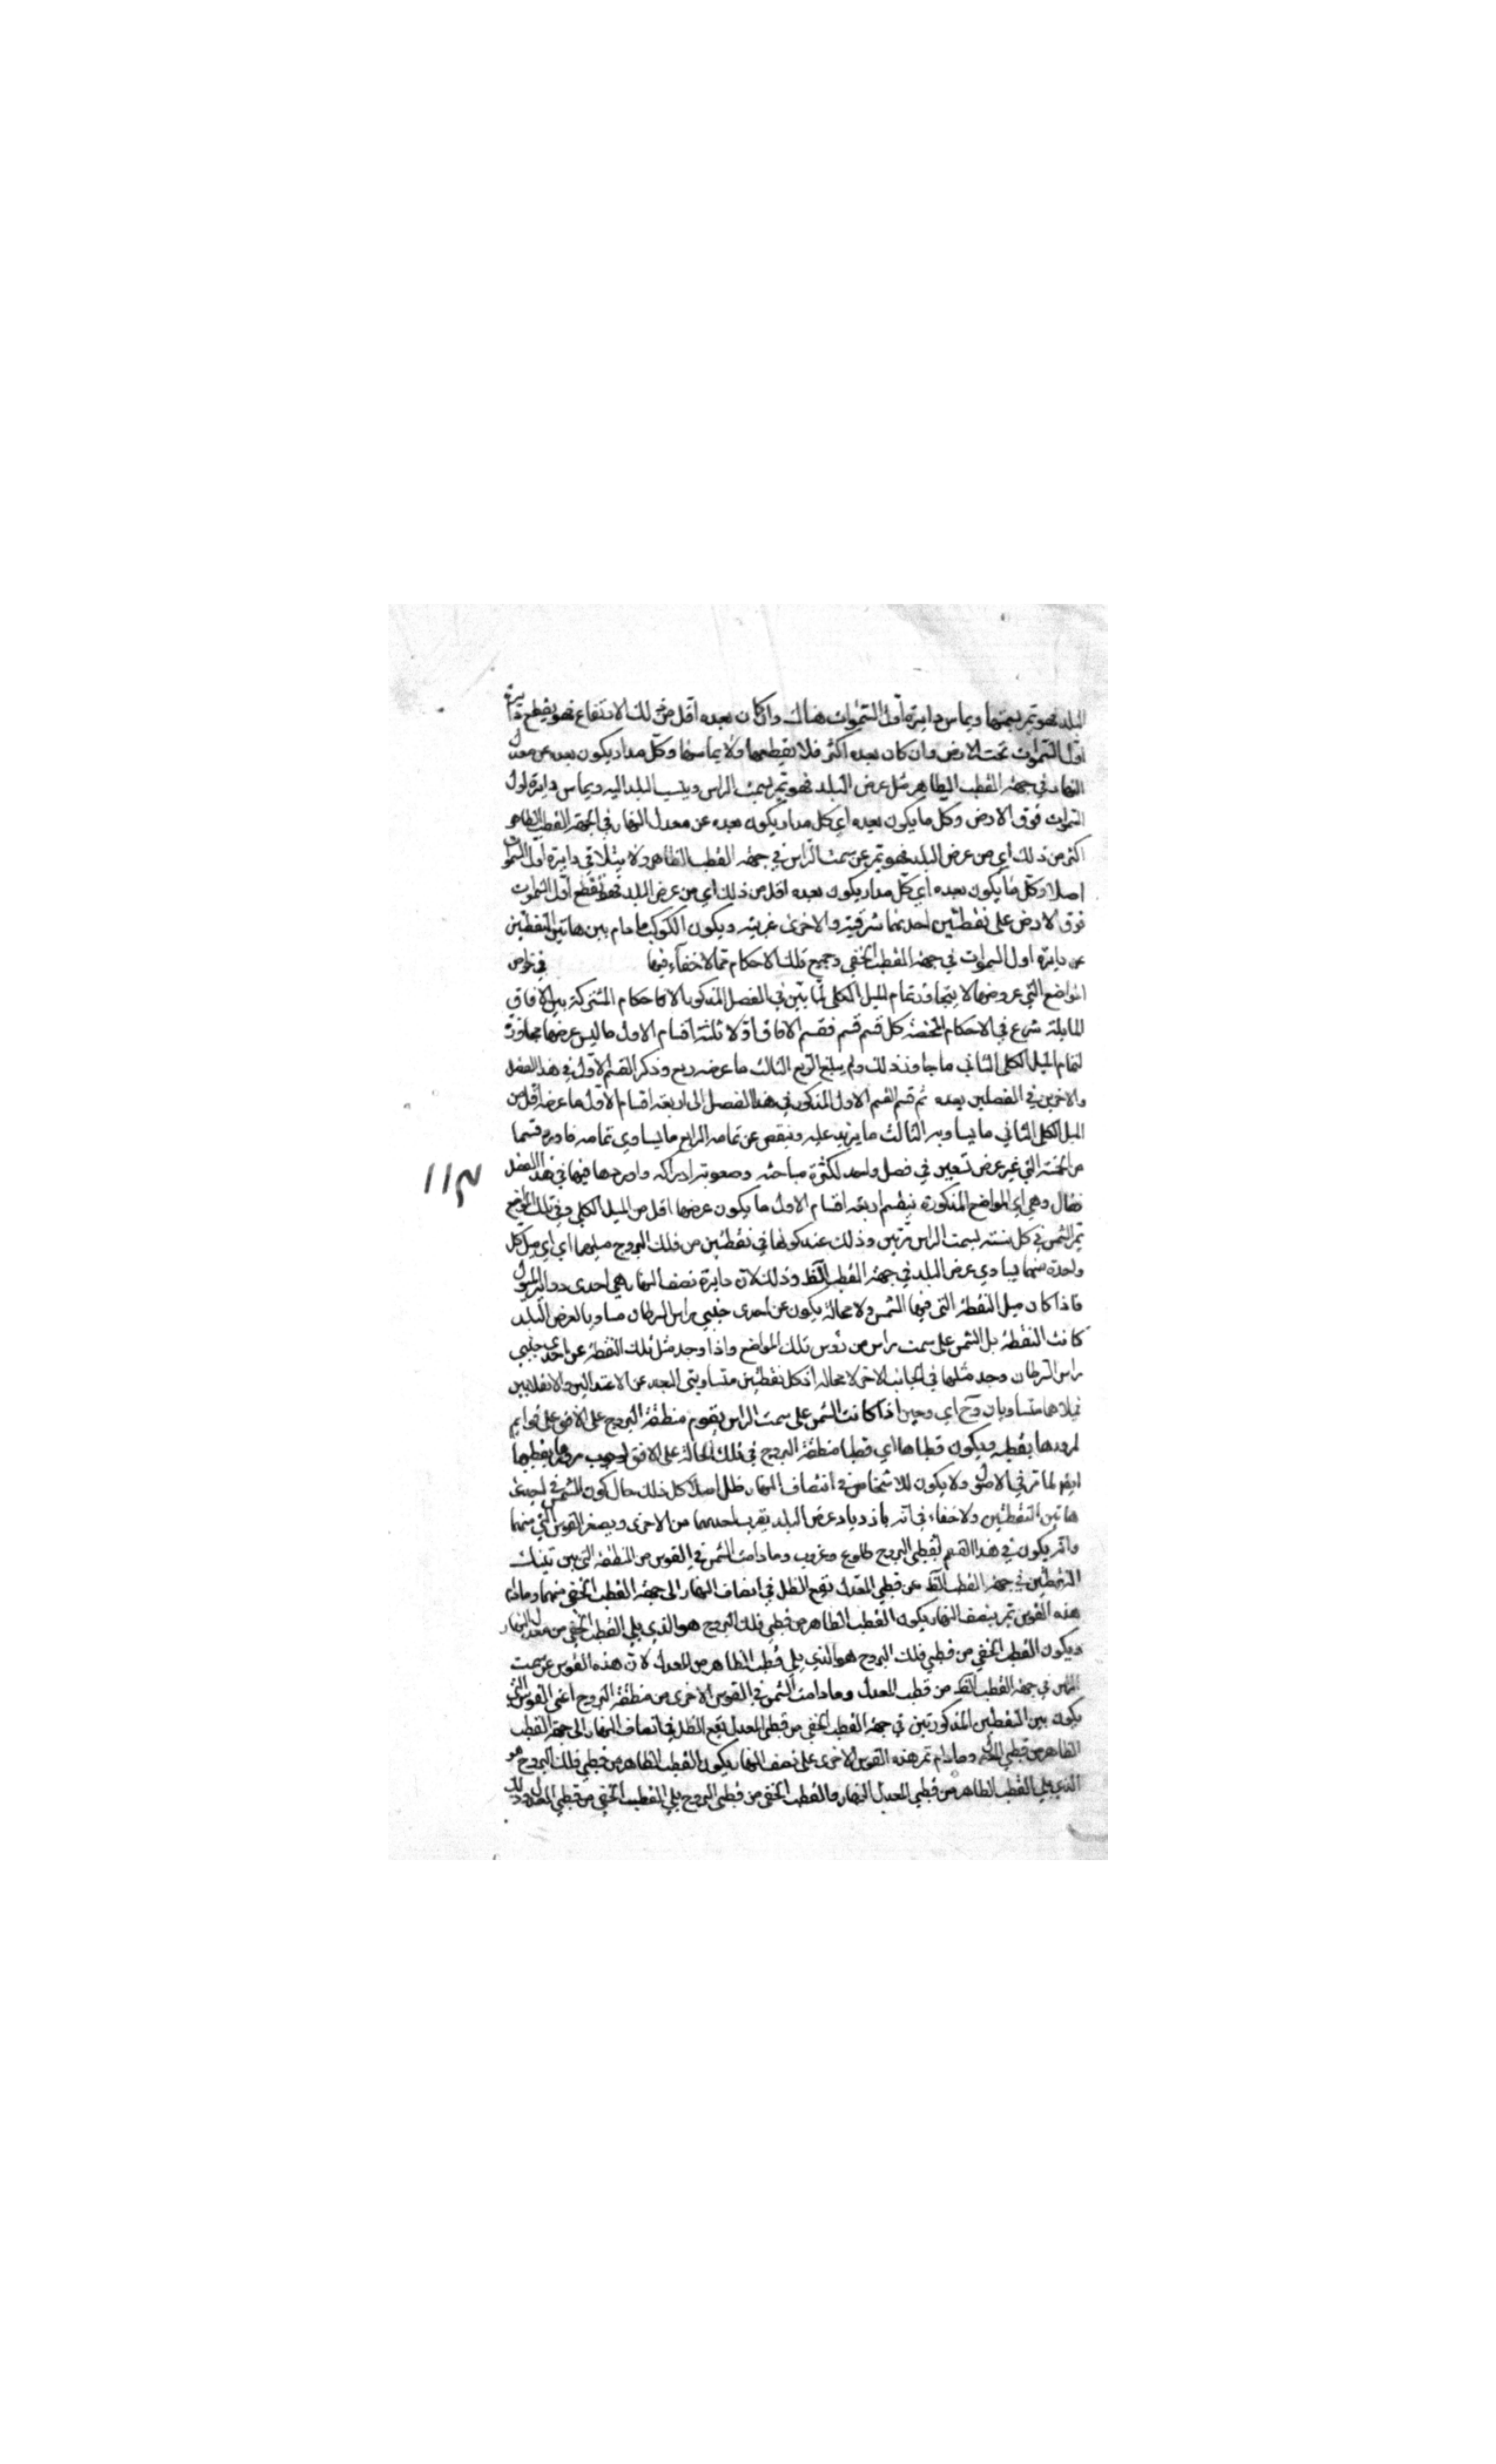 البلد فهو يمر بسمتها ويماس دايرة اول السموات هناك وان كان بعده اقل من ذلك الارتفاع فهو يقطع دايرة
اول السموات تحت الارض وان كان بعده اكثر فلا يقطعها ولا يماسها وكل مدار يكون بعده عن معدل
النهار في جهة القطب الظاهر مثل عرض البلد فهو يمر بسمت الراس وينسب البلد اليه ويماس دايرة اول
السموات فوق الارض وكل ما يكون بعده اي كل مدار يكون بعده عن معدل النهار في الجهة القطب الظاهر
اكثر من ذلك اي من عرض البلد فهو يمر عن سمت الراس في جهة القطب الظاهر ولا يتلاقى دايرة اول السموات
اصلا وكل ما يكون بعده اي كل مدار يكون بعده اقل من ذلك اي من عرض البلد فهو يقطع اول السموات
فوق الارض على نقطتين احديهما شرقية والاخرى غربية ويكون الكوكب ما دام بين هاتين النقطتين
عن دايرة اول السموات في جهة القطب الخفي وجميع تلك الاحكام مما لا خفاء فيها في خواص
المواضع التي عروضها لا يتجاوز تمام الميل الكلي لما بين في الفصل المذكور بالافاحكام المشتركة بين الافاق
المايلة شرع في الاحكام المختصة كل قسم قسم فقسم الافاق اولا ثلثة اقسام الاول ما ليس عرضها مجاوزة
لتمام الميل الكلي الثاني ما جاوز ذلك ولم يبلغ الربع الثالث ما عرضه ربع وذكر القسم الاول في هذا الفصل
والاخرين في الفصلين بعده ثم قسم القسم الاول المذكور في هذا الفصل الى اربعة اقسام الاول ما عرضه اقل من
الميل الكلي الثاني ما يساويه الثالث ما يزيد عليه وينقص عن تمامه الرابع ما يساوي تمامه فاورد قسما
من الخمسة التي غير عرض تسعين في فصل واحد لكثرة مباحثه وصعوبة ادراكه وادرجها فيها في هذا الفصل
فقال وهي اي المواضع المذكورة ينقسم اربعة اقسام الاول ما يكون عرضها اقل من الميل الكلي وفي تلك المواضع
تمر الشمس في كل سنة بسمت الراس مرتين وذلك عند كونها في نقطتين من فلك البروج ميلهما اي اي ميل كل
واحدة منهما يساوي عرض البلد في جهة القطب الظ وذلك لان دايرة نصف النهار هي احدى دواير الميول
فاذا كان ميل النقطة التي فيها الشمس ولا محالة يكون عن احدى جنبي راس السرطان مساويا لعرض البلد
كانت النقطة بل الشمس على سمت راس من رؤس تلك المواضع واذا وجد مثل تلك النقطة عن احدى جنبي
راس السرطان وجد مثلها في الجانب الاخر لا محالة اذ كل نقطتين متساويتي البعد عن الاعتدالين والانقلابين
فميلاهما متساويان وح اي وحين اذا كانت الشمس على سمت الراس يقوم منطقة البروج على الافق على قوايم
لمرورها بقطبه ويكون قطباها اي قطبا منطقة البروج في تلك الحالة على الافق لوجوب مروره بقطبيها
ايضا لما مر في الاصول ولا يكون للاشخاص في انتصاف النهار ظل اصلا كل ذلك حال كون الشمس في احدى
هاتين النقطتين ولا خفاء في انه بازدياد عرض البلد يقرب احديهما من الاخرى ويصغر القوس التي بينهما
وانه يكون في هذا القسم لقطبي البروج طلوع وغروب وما دامت الشمس في القوس من المنطقة التي بين تينك
النقطتين في جهة القطب الظ عن قطبي المعدل يقع الظل في انصاف النهار الى جهة القطب الخفي منهما وما دام
هذه القوس تمر بنصف النهار يكون القطب الظاهر من قطبي فلك البروج هو الذي يلي القطب الخفي من معدل النهار
ويكون القطب الخفي من قطبي فلك البروج هو الذي يلي قطب الظاهر من المعدل لان هذه القوس عن سمت
الراس في جهة القطب الظ من قطب المعدل وما دامت الشمس في القوس الاخرى من منطقة البروج اعني القوس التي
يكون بين النقطتين المذكورتين في جهة القطب الخفي من قطبي المعدل يقع الظل في انصاف النهار الى جهة القطب
الظاهر من قطبي المعدل وما دام تمر هذه القوس الاخرى على نصف النهار يكون القطب الظاهر من قطبي فلك البروج هو
الذي يلي القطب الظاهر من قطبي المعدل النهار والقطب الخفي من قطبي البروج يلي القطب الخفي من قطبي المعدل وذلك